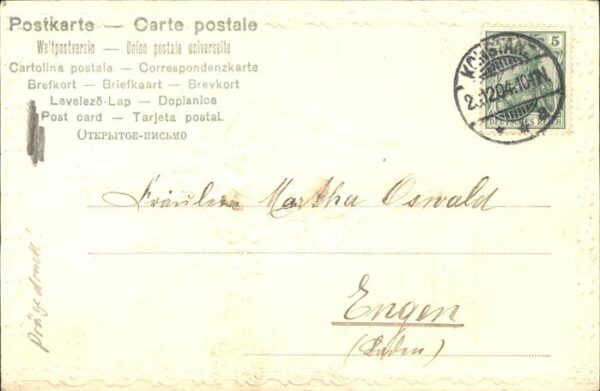 Postkarte — Carte postale
Weltpostverein — Union postale universelle
Cartolina postale — Correspondenzkarte
Brefkort — Briefkaart — Brevkort
Levelező-Lap — Dopisnice
Post card — Tarjeta postal.
Открытое-письмо
5
KONSTANZ
2.12.04.10-11N.
* * a
DEUTSCHES REICH
Fräulein Martha Oswald
Engen
(Baden)
Prägedruck!